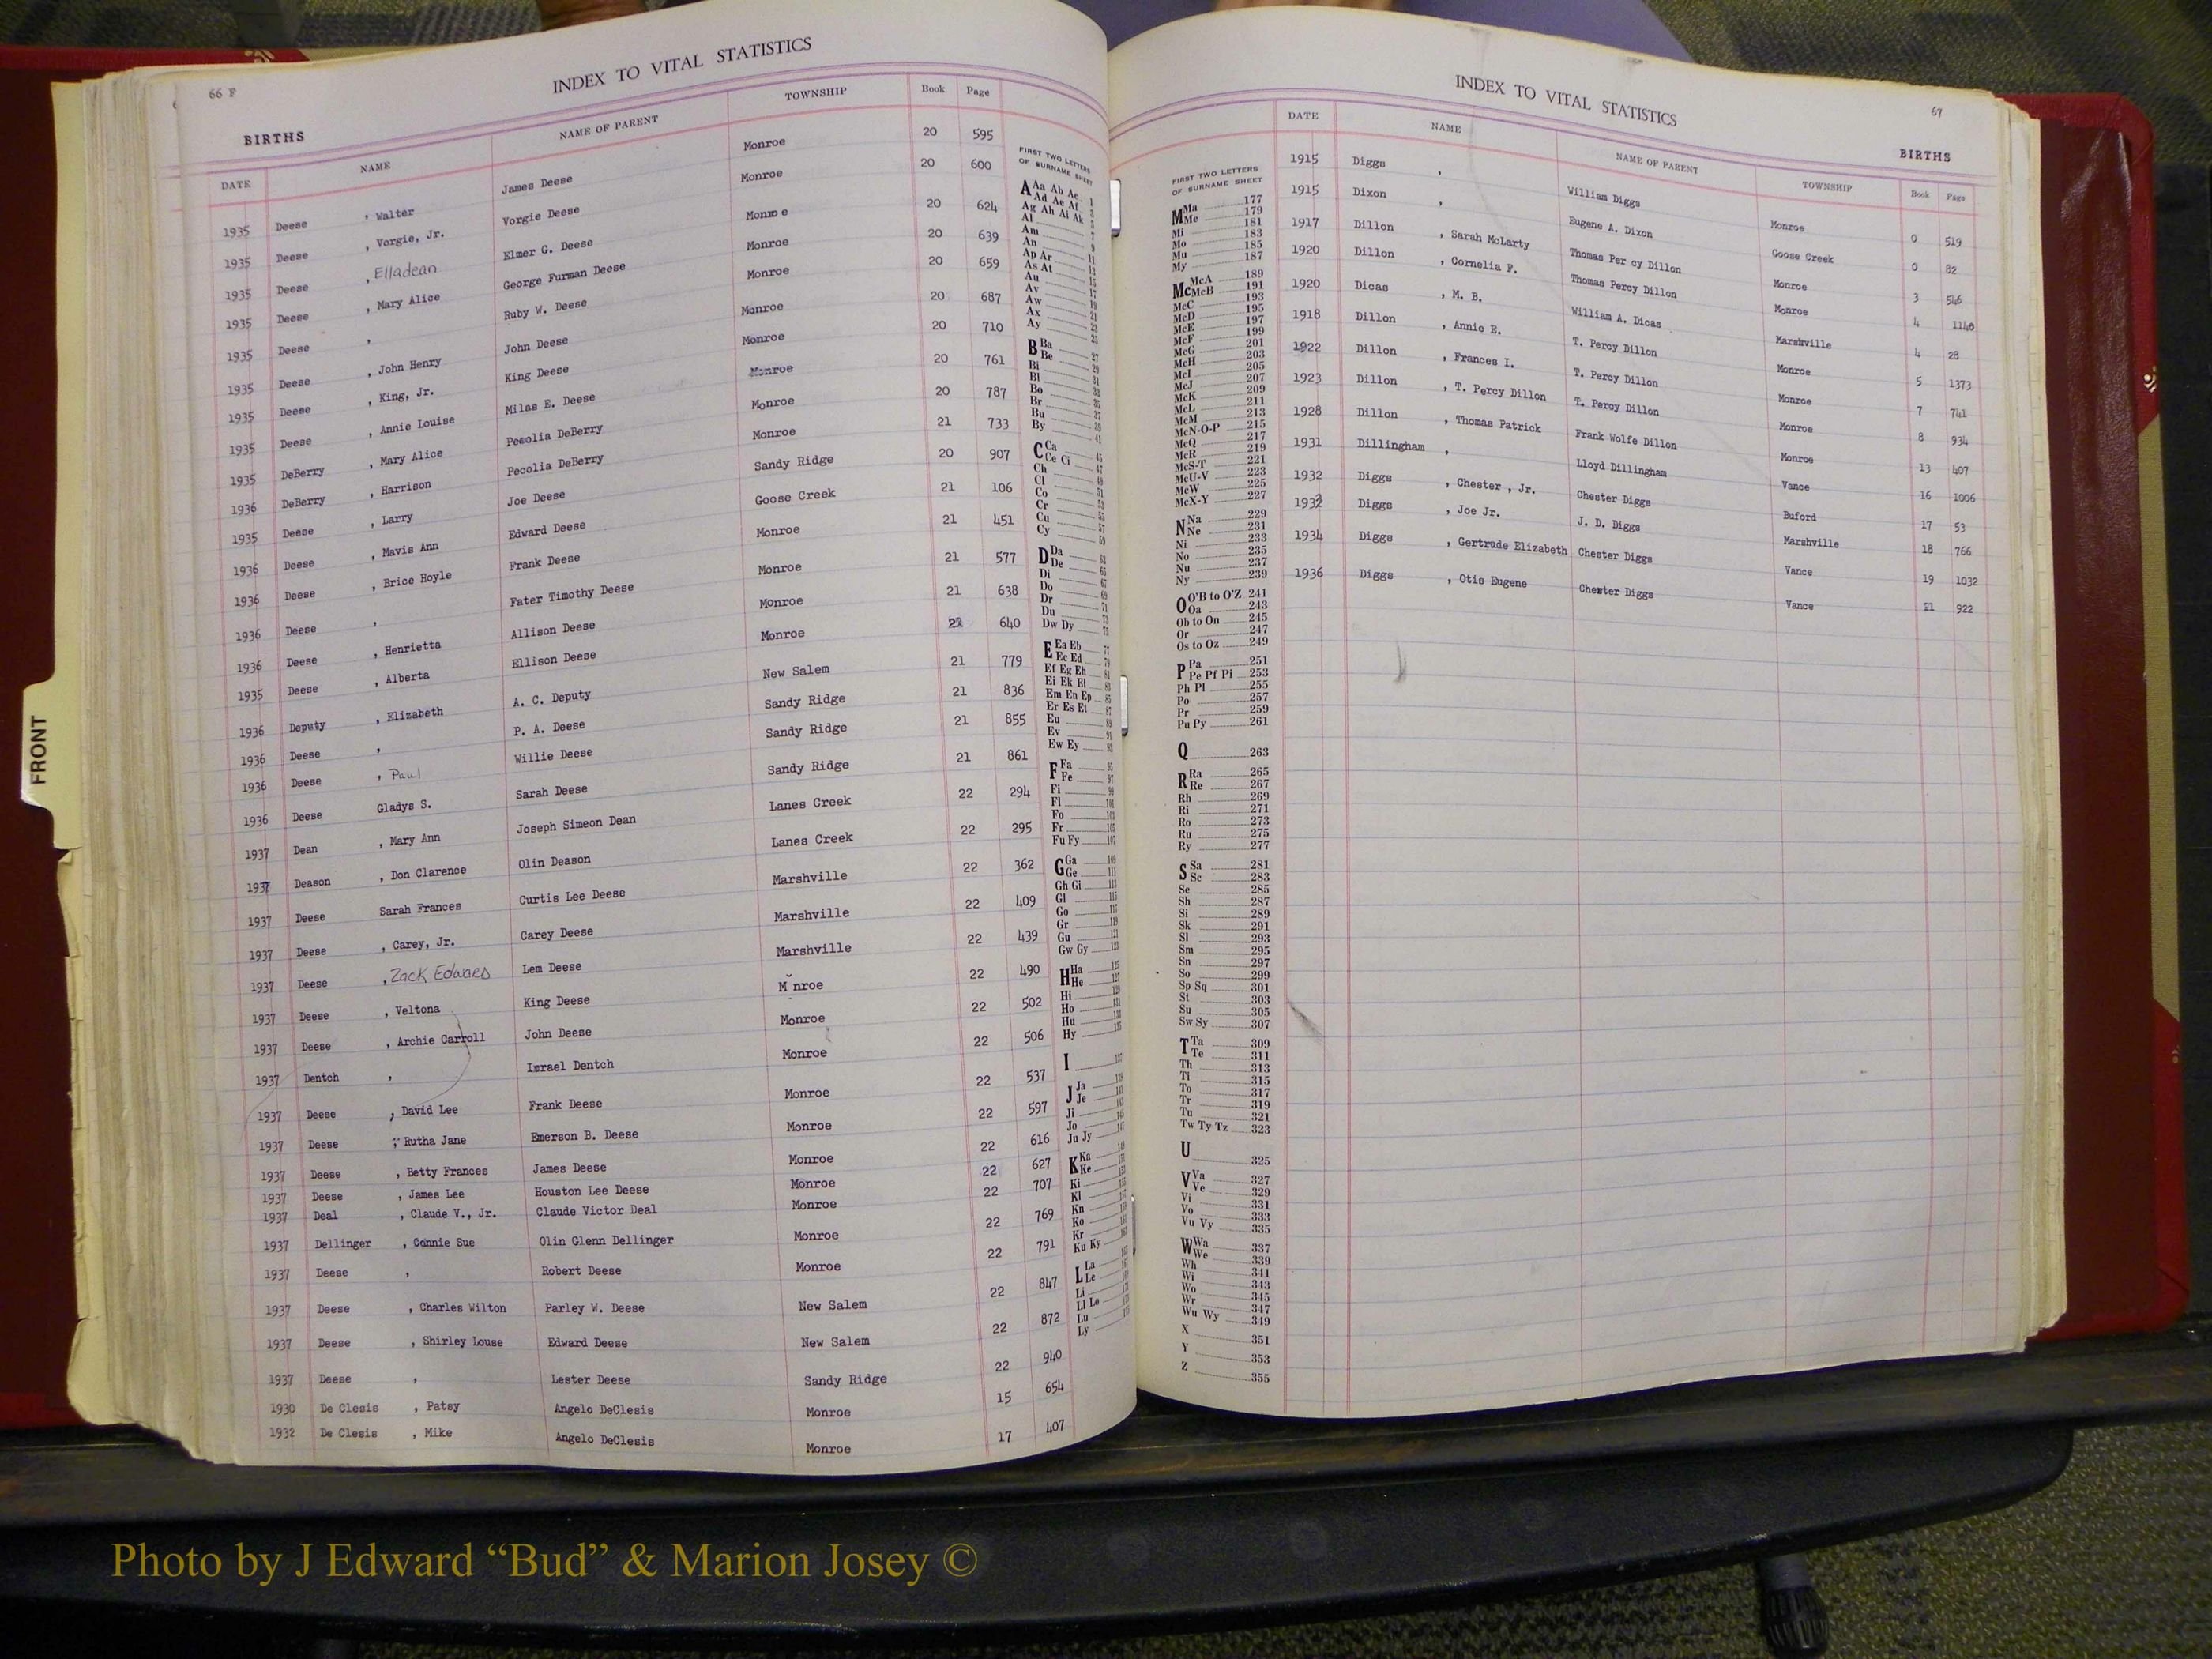 66 F
INDEX TO VITAL STATISTICS
BIRTHS
DATE NAME NAME OF PARENT TOWNSHIP Book Page
1935 Deese , Walter James Deese Monroe 20 595
1935 Deese , Vorgie, Jr. Vorgie Deese Monroe 20 600
1935 Deese , Elladean Elmer G. Deese Monroe 20 624
1935 Deese , Mary Alice George Furman Deese Monroe 20 639
1935 Deese , Ruby W. Deese Monroe 20 659
1935 Deese , John Henry John Deese Monroe 20 687
1935 Deese , King, Jr. King Deese Monroe 20 710
1935 Deese , Annie Louise Milas E. Deese Monroe 20 761
1935 DeBerry , Mary Alice Pecolia DeBerry Monroe 20 787
1936 DeBerry , Harrison Pecolia DeBerry Monroe 21 733
1935 Deese , Larry Joe Deese Sandy Ridge 20 907
1936 Deese , Mavis Ann Edward Deese Goose Creek 21 106
1936 Deese , Brice Hoyle Frank Deese Monroe 21 451
1936 Deese , Fater Timothy Deese Monroe 21 577
1936 Deese , Henrietta Allison Deese Monroe 21 638
1935 Deese , Alberta Ellison Deese Monroe 640
1936 Deputy , Elizabeth A. C. Deputy New Salem 21 779
1936 Deese , P. A. Deese Sandy Ridge 21 836
1936 Deese , Paul Willie Deese Sandy Ridge 21 855
1936 Deese Gladys S. Sarah Deese Sandy Ridge 21 861
1937 Dean , Mary Ann Joseph Simeon Dean Lanes Creek 22 294
1937 Deason , Don Clarence Olin Deason Lanes Creek 22 295
1937 Deese Sarah Frances Curtis Lee Deese Marshville 22 362
1937 Deese , Carey, Jr. Carey Deese Marshville 22 409
1937 Deese , Zack Lem Deese Marshville 22 439
1937 Deese , Veltona King Deese M nroe 22 490
1937 Deese , Archie Carroll John Deese Monroe 22 502
1937 Dentch , Israel Dentch Monroe 22 506
1937 Deese , David Lee Frank Deese Monroe 22 537
1937 Deese , Rutha Jane Emerson B. Deese Monroe 22 597
1937 Deese , Betty Frances James Deese Monroe 22 616
1937 Deese , James Lee Houston Lee Deese Monroe 22 627
1937 Deal , Claude V., Jr. Claude Victor Deal Monroe 22 707
1937 Dellinger , Connie Sue Olin Glenn Dellinger Monroe 22 769
1937 Deese , Robert Deese Monroe 22 791
1937 Deese , Charles Wilton Parley W. Deese New Salem 22 847
1937 Deese , Shirley Louse Edward Deese New Salem 22 872
1937 Deese , Lester Deese Sandy Ridge 22 940
1930 De Clesis , Patsy Angelo DeClesis Monroe 15 654
1932 De Clesis , Mike Angelo DeClesis Monroe 17 407
FIRST TWO LETTERS
OF SURNAME SHEET
A Aa Ab Ac
Ad Ae Af 1
Ag Ah Ai Ak
Al
Am
An
Ap Ar
As At
Au
Av
Aw
Ax
Ay
B Ba
Be
Bi
Bl
Bo
Br
Bu
By
C Ca
Ce Ci
Ch
Cl
Co
Cr
Cu
Cy
D Da
De
Di
Do
Dr
Du
Dw Dy
E Ea Eb
Ec Ed
Ef Eg Eh
Ei Ek El
Em En Ep
Er Es Et
Eu
Ev
Ew Ey
F Fa
Fe
Fi
Fl
Fo
Fr
Fu Fy
G Ga
Ge
Gh Gi
Gl
Go
Gr
Gu
Gw Gy
H Ha
He
Hi
Ho
Hu
Hy
I
J Ja
Je
Ji
Jo
Ju Jy
K Ka
Ke
Ki
Kl
Kn
Ko
Kr
Ku Ky
L La
Le
Li
Ll Lo
Lu
Ly
FRONT
INDEX TO VITAL STATISTICS
67
BIRTHS
FIRST TWO LETTERS
OF SURNAME SHEET
M Ma 177
Me 179
Mi 181
Mo 183
Mu 185
My 187
Mc McA 189
McB 191
McC 193
McD 195
McE 197
McF 199
McG 201
McH 203
McI 205
McJ 207
McK 209
McL 211
McM 213
McN-O-P 215
McQ 217
McR 219
McS-T 221
McU-V 223
McW 225
McX-Y 227
N Na 229
Ne 231
Ni 233
No 235
Nu 237
Ny 239
O O'B to O'Z 241
Oa 243
Ob to On 245
Or 247
Os to Oz 249
P Pa 251
Pe Pf Pi 253
Ph Pl 255
Po 257
Pr 259
Pu Py 261
Q 263
R Ra 265
Re 267
Rh 269
Ri 271
Ro 273
Ru 275
Ry 277
S Sa 281
Sc 283
Se 285
Sh 287
Si 289
Sk 291
Sl 293
Sm 295
Sn 297
So 299
Sp Sq 301
St 303
Su 305
Sw Sy 307
T Ta 309
Te 311
Th 313
Ti 315
To 317
Tr 319
Tu 321
Tw Ty Tz 323
U 325
V Va 327
Ve 329
Vi 331
Vo 333
Vu Vy 335
W Wa 337
We 339
Wh 341
Wi 343
Wo 345
Wr 347
Wu Wy 349
X 351
Y 353
Z 355
DATE NAME NAME OF PARENT TOWNSHIP Book Page
1915 Diggs , William Diggs Monroe 0 519
1915 Dixon , Eugene A. Dixon Goose Creek 0 82
1917 Dillon , Sarah McLarty Thomas Per cy Dillon Monroe 3 546
1920 Dillon , Cornelia F. Thomas Percy Dillon Monroe 4 1140
1920 Dicas , M. B. William A. Dicas Marshville 4 28
1918 Dillon , Annie E. T. Percy Dillon Monroe 5 1373
1922 Dillon , Frances I. T. Percy Dillon Monroe 7 741
1923 Dillon , T. Percy Dillon T. Percy Dillon Monroe 8 934
1928 Dillon , Thomas Patrick Frank Wolfe Dillon Monroe 13 407
1931 Dillingham , Lloyd Dillingham Vance 16 1006
1932 Diggs , Chester , Jr. Chester Diggs Buford 17 53
Diggs , Joe Jr. J. D. Diggs Marshville 18 766
1934 Diggs , Gertrude Elizabeth Chester Diggs Vance 19 1032
1936 Diggs , Otis Eugene Chester Diggs Vance 21 922
Photo by J Edward “Bud” & Marion Josey ©